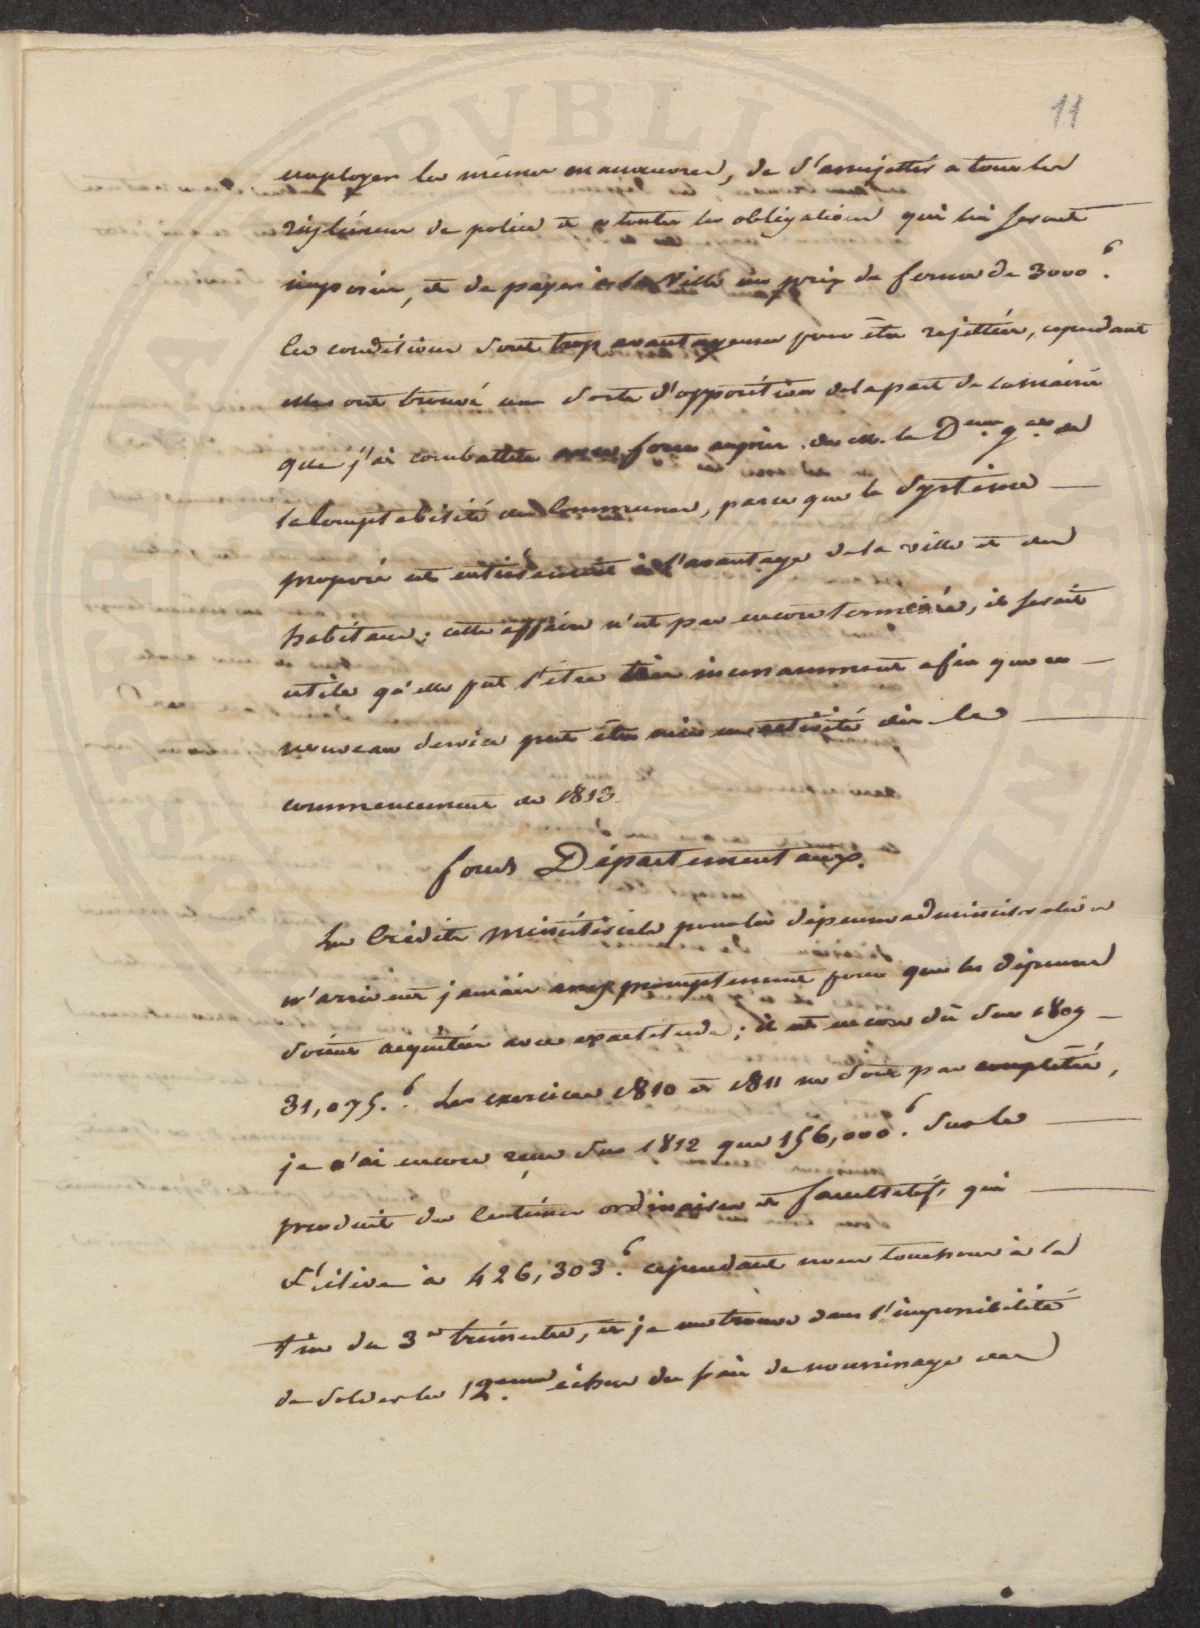 11
employer les mêmes manœuvres, de s'assujettir a tous les
règlemens de police et a toutes les obligations qui lui seront
imposées, et de payer à la Ville un prix de ferme de 3000 f.
les conditions sont trop avantageuses pour être rejettées, cependant
elles ont trouvé une sorte d'opposition de la part de la mairie
que j'ai combattue avec force auprès de M. le Dteur gral de
la Comptabilité des Communes, parce que le système
proposé est entièrement à l'avantage de la ville et des
habitans; cette affaire n'est pas encore terminée, il serait
utile qu'elle put l'être très incessamment afin que ce
nouveau service put être mis en activité dès le
commencement de 1813.
fonds Départementaux.
Les Crédits Ministériels pour les dépenses administratives
n'arrivent jamais assez promptement pour que les dépenses
soient acquittées avec exactitude; il est encore dû sur 1809
31,075.f Les exercices 1810 et 1811 ne sont pas complétés,
je n'ai encore reçu sur 1812 que 156,000.f sur le
produit des Centimes ordinaires et facultatifs, qui
s'élève à 426,303.f cependant nous touchons à la
fin du 3e trimestre, et je me trouve dans l'impossibilité
de solder les 12emes échus des frais de nourrissage des